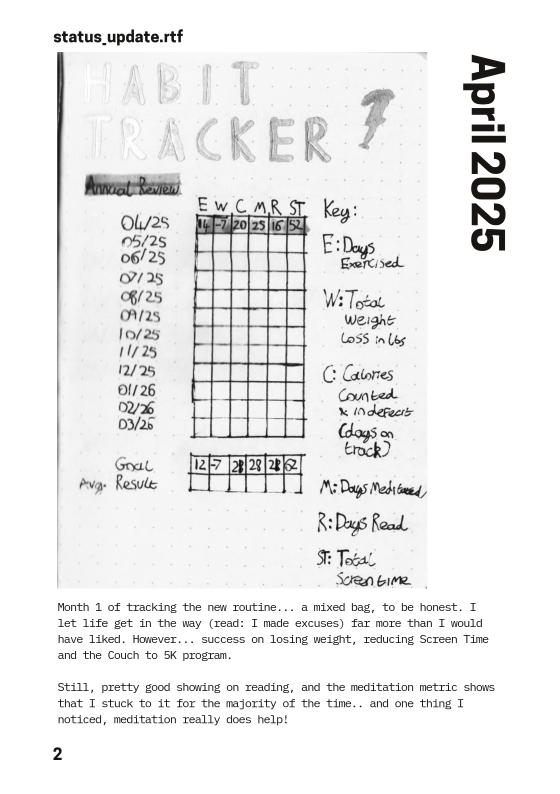 status_update.rtf
April 2025
HABIT
TRACKER
Annual Review
E W C M R ST
04/25 14 -7 20 25 16 52
05/25
06/25
07/25
08/25
09/25
10/25
11/25
12/25
01/26
02/26
03/26
Goal 12 -7 28 28 28 62
Avg. Result
Key:
E: Days
Exercised
W: Total
Weight
Loss in lbs
C: Calories
Counted
& in defecit
(days on
track)
M: Days Meditated
R: Days Read
ST: Total
Screen time
Month 1 of tracking the new routine... a mixed bag, to be honest. I
let life get in the way (read: I made excuses) far more than I would
have liked. However... success on losing weight, reducing Screen Time
and the Couch to 5K program.
Still, pretty good showing on reading, and the meditation metric shows
that I stuck to it for the majority of the time.. and one thing I
noticed, meditation really does help!
2